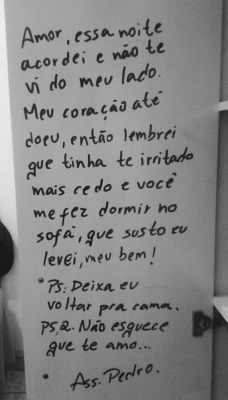 Amor, essa noite
acordei e não te
vi do meu lado.
Meu coração até
doeu, então lembrei
que tinha te irritado
mais cedo e você
me fez dormir no
sofá, que susto eu
levei, meu bem!
PS: Deixa eu
voltar pra cama.
PS,2. Não esquece
que te amo...
Ass. Pedro.